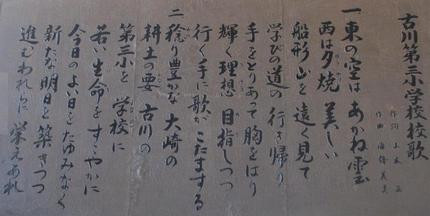 古川第三小学校校歌
作詞
作曲
一 東の空は あかね雲
西は夕焼 美しい
船形山を 遠く見て
学びの道の 行き帰り
手をとりあって 胸をはり
輝く理想 目指しつつ
行く手に歌が こだまする
二 稔り豊かな 大崎の
耕土の要 古川の
第三小を 学校に
若い生命を すこやかに
今日のよい日を たゆみなく
新たな明日を 築きつつ
進むわれらに 栄えあれ